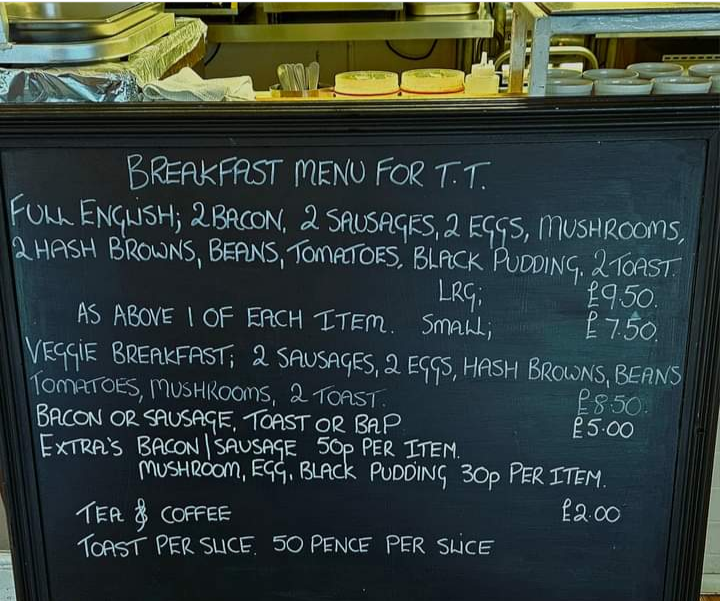 BREAKFAST MENU FOR T.T.
FULL ENGLISH; 2 BACON, 2 SAUSAGES, 2 EGGS, MUSHROOMS,
2 HASH BROWNS, BEANS, TOMATOES, BLACK PUDDING, 2 TOAST.
LRG; £9.50.
AS ABOVE 1 OF EACH ITEM. SMALL; £7.50.
VEGGIE BREAKFAST; 2 SAUSAGES, 2 EGGS, HASH BROWNS, BEANS
TOMATOES, MUSHROOMS, 2 TOAST. £8.50.
BACON OR SAUSAGE, TOAST OR BAP £5.00
EXTRA'S BACON | SAUSAGE 50p PER ITEM.
MUSHROOM, EGG, BLACK PUDDING 30p PER ITEM.
TEA & COFFEE £2.00
TOAST PER SLICE. 50 PENCE PER SLICE